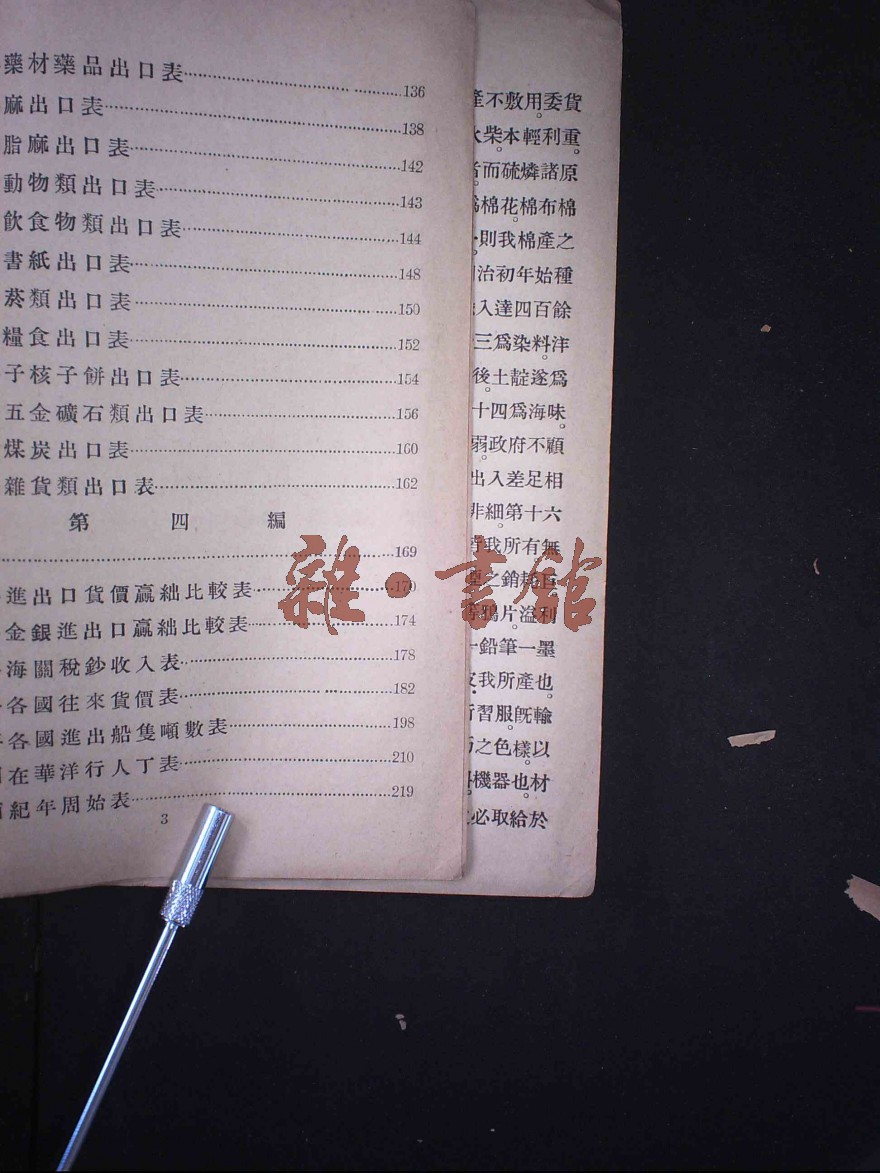 藥材藥品出口表……136
麻出口表……138
脂麻出口表……142
動物類出口表……143
飲食物類出口表……144
書紙出口表……148
菸類出口表……150
糧食出口表……152
子核子餅出口表……154
五金礦石類出口表……156
煤炭出口表……160
雜貨類出口表……162
第四編
……169
進出口貨價贏絀比較表……170
金銀進出口贏絀比較表……174
海關稅鈔收入表……178
各國往來貨價表……182
各國進出船隻噸數表……198
在華洋行人丁表……210
紀年周始表……219
3
產不敷用。委貨
柴。本輕利重。
而硫燐諸原
棉花。棉布棉
則我棉產之
治初年始種
入達四百餘
三爲染料。洋
後。土靛遂爲
十四爲海味。
弱。政府不顧
出入差足相
非細。第十六
我所有無
之銷耗
鴉片。溢利
鉛筆一墨
我所產也。
習服。旣輸
之色樣。以
機器也。材
必取給於
雜·書館